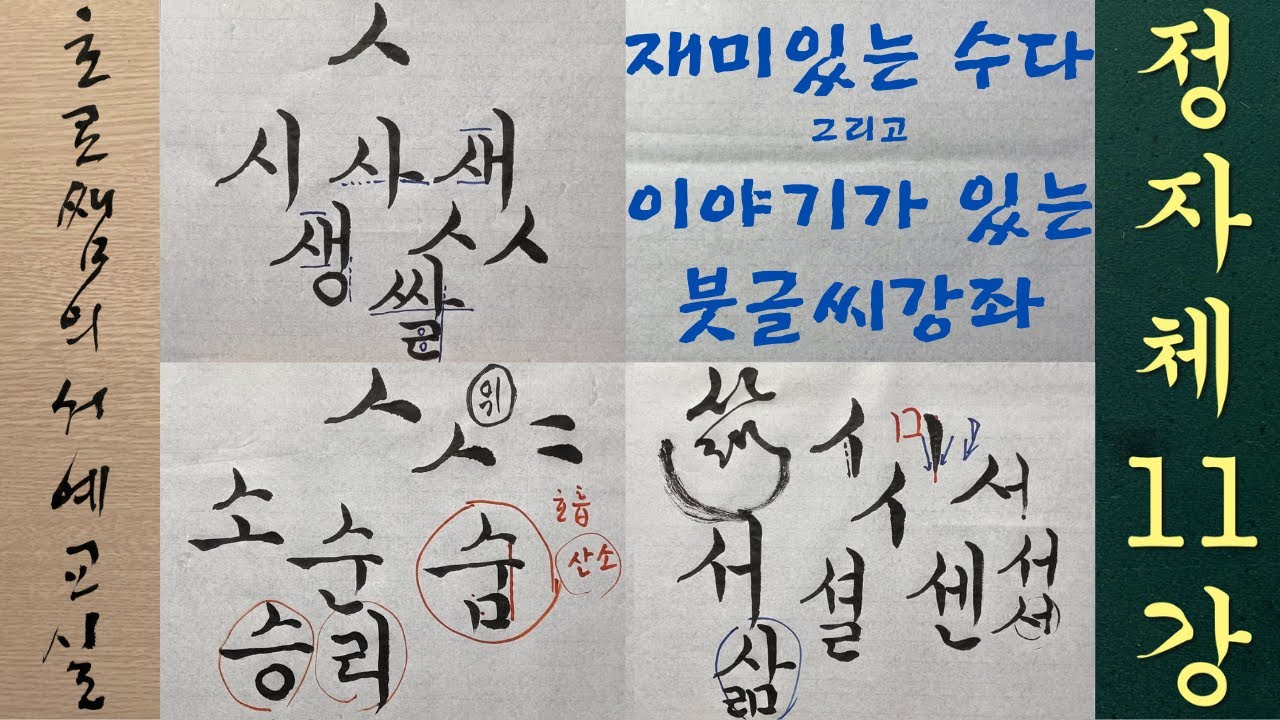 호르쌤의 서예교실
ㅅ
시 사 새
생 ㅅ ㅅ
쌀
재미있는 수다
그리고
이야기가 있는
붓글씨강좌
ㅅ
위
ㅅ =
소 순 숨
호흡
산소
승 리
서
서 셜 센 서
서
삶
정자체11강